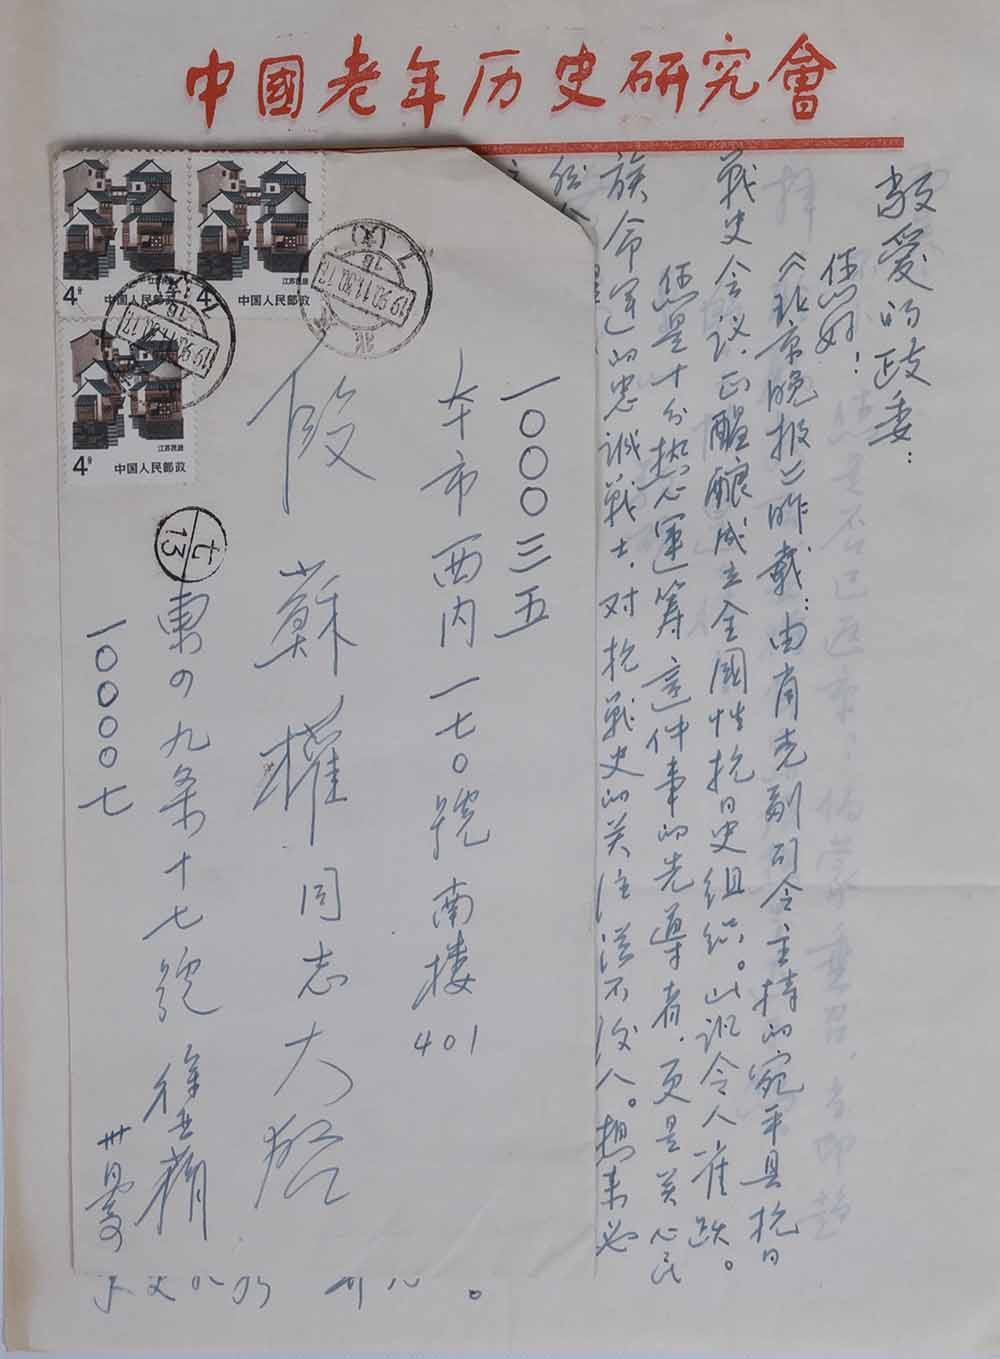 中國老年历史研究會
敬爱的政委：
您好！
《北京晚报》昨载：由肖克副司令主持的宛平县抗日
战史会议，正醖酿成立全國性抗日史组织。此讯令人雀跃。
您是十分热心運筹這件事的先導者，更是关心民
族命运的忠诚战士，对抗战史的关注從不後人。想来必
一〇〇〇三五
本市西内一七〇號南楼
401
段蘇權同志大啓
東四九条十七號
一〇〇〇七
卅日
江苏民居
4分
中国人民邮政
江苏民居
4分
中国人民邮政
江苏民居
4分
中国人民邮政
1990.11.30.17
北京
七
13